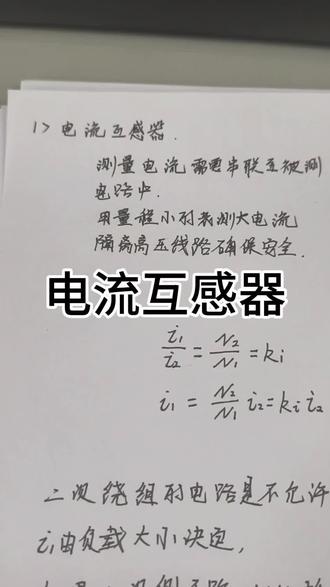 1> 电流互感器.
测量电流需要串联至被测
电路中.
用量程小的表测大电流
隔离高压线路确保安全.
电流互感器
i₁/i₂ = N₂/N₁ = ki
i₁ = N₂/N₁ i₂ = ki i₂
二次绕组的电路是不允许
i₁由负载大小决定,